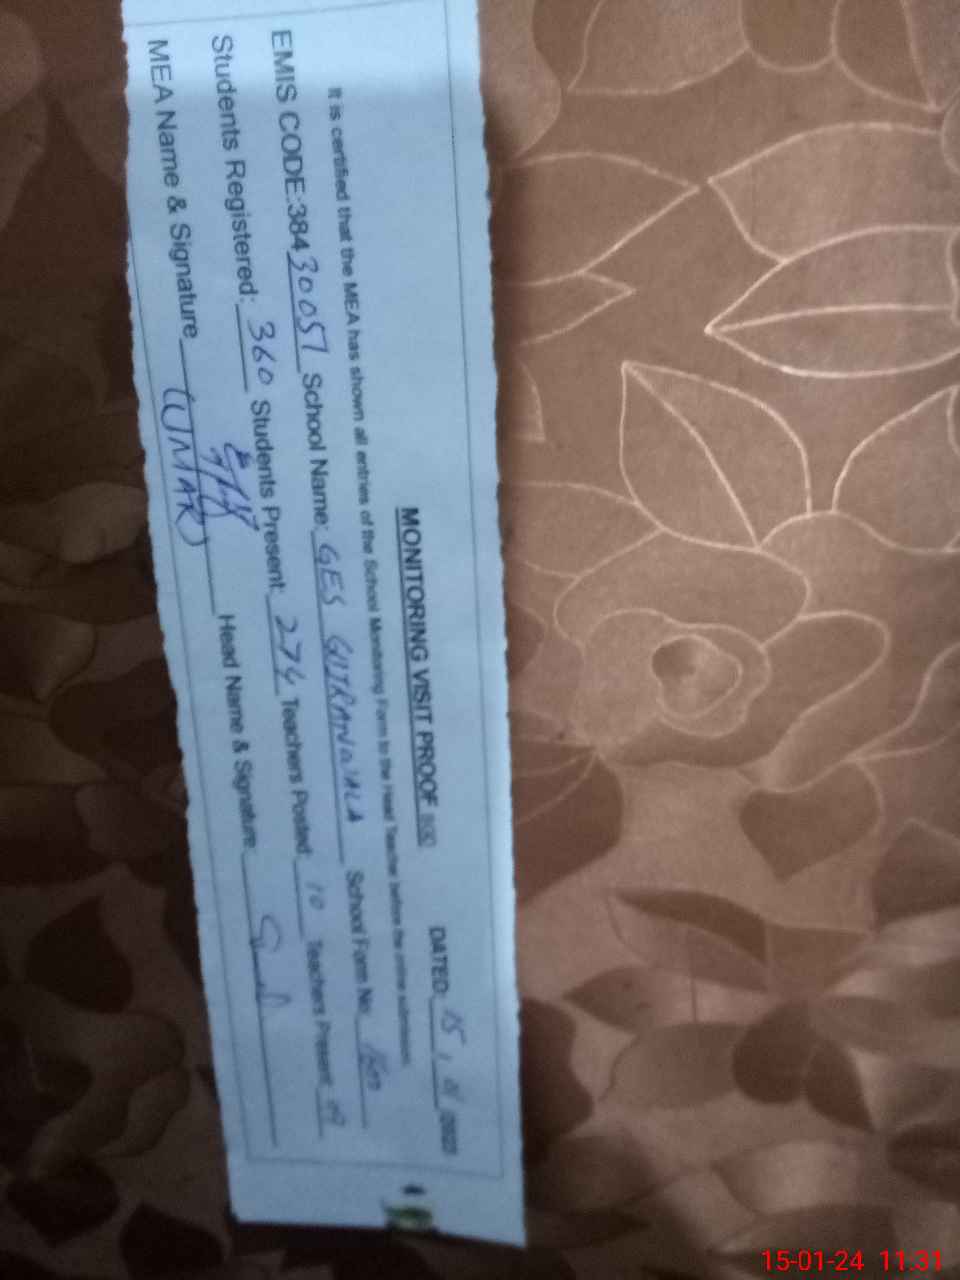 MONITORING VISIT PROOF
DATED: 15, 01 202
It is certified that the MEA has shown all entries of the School Monitoring Form to the Head Teacher before the online submission.
EMIS CODE:38430051 School Name: GES GUJRANWALA School Form No.
Students Registered: 360 Students Present: 274 Teachers Posted 10 Teachers Present 09
MEA Name & Signature (UMAR) Head Name & Signature
15-01-24 11:31